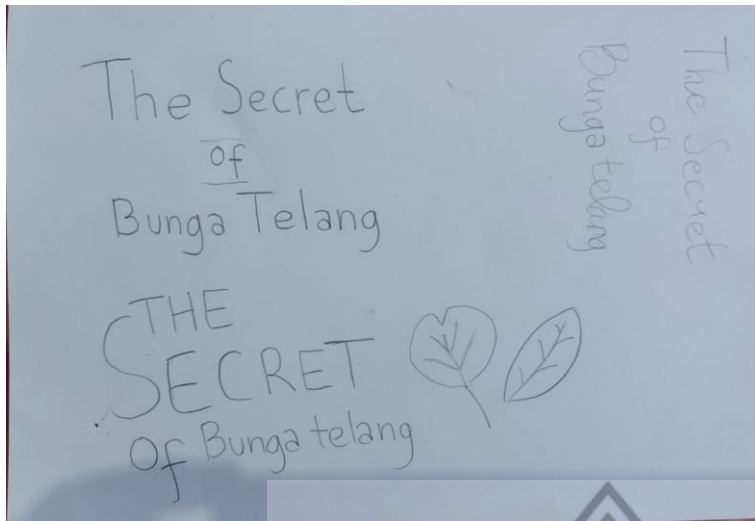 The Secret
of
Bunga Telang
THE
SECRET
Of Bunga telang
The Secret
of
Bunga telang